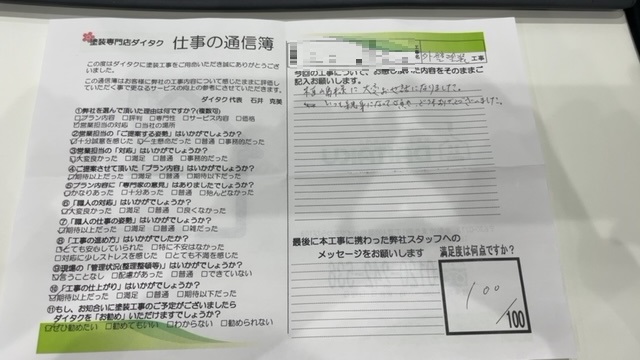 塗装専門店ダイタク 仕事の通信簿
この度はダイタクに塗装工事をご用命いただき誠にありがとうござ
いました。
この通信簿はお客様に弊社の工事内容について感じたままに評価し
ていただく事で更なるサービスの向上の参考にさせていただきます。
ダイタク代表 石井 克美
①弊社を選んで頂いた理由は何ですか?(複数可)
□プラン内容 □評判 □専門性 □サービス内容 □価格
☑営業担当の対応 □当社の場所
②営業担当の「ご提案する姿勢」はいかがでしょうか?
☑十分誠意を感じた □一生懸命だった □普通 □事務的だった
③営業担当の「対応」はいかがでしょうか?
☑大変良かった □満足 □普通 □事務的だった
④ご提案させて頂いた「プラン内容」はいかがでしょうか?
☑期待以上だった □満足 □普通 □期待以下だった
⑤プラン内容に「専門家の意見」はありましたでしょうか?
☑かなりあった □十分あった □普通 □殆んどなかった
⑥「職人の対応」はいかがでしょうか?
☑大変良かった □満足 □普通 □良くなかった
⑦「職人の仕事の姿勢」はいかがでしょうか?
☑期待以上だった □満足 □普通 □雑だった
⑧「工事の進め方」はいかがでしたか?
☑とても安心していられた □特に不安はなかった
□対応に少しストレスを感じた □とても不満を感じた
⑨現場の「管理状況(整理整頓等)」はいかがでしょうか?
☑言うことなし □配慮があった □普通 □できていない
⑩「工事の仕上がり」はいかがでしょうか?
☑期待以上だった □満足 □普通 □期待以下だった
⑪もし、お知合いに塗装工事のご予定がございましたら
ダイタクを「お勧め」いただけますでしょうか?
☑ぜひ勧めたい □勧めてもいい □わからない □勧められない
工事名 外壁塗装 工事
今回の工事について、お感じになった内容をそのままご
記入お願いします。
大変お世話になりました。
ございました。
最後に本工事に携わった弊社スタッフへの
メッセージをお願いします
満足度は何点ですか?
100
/100